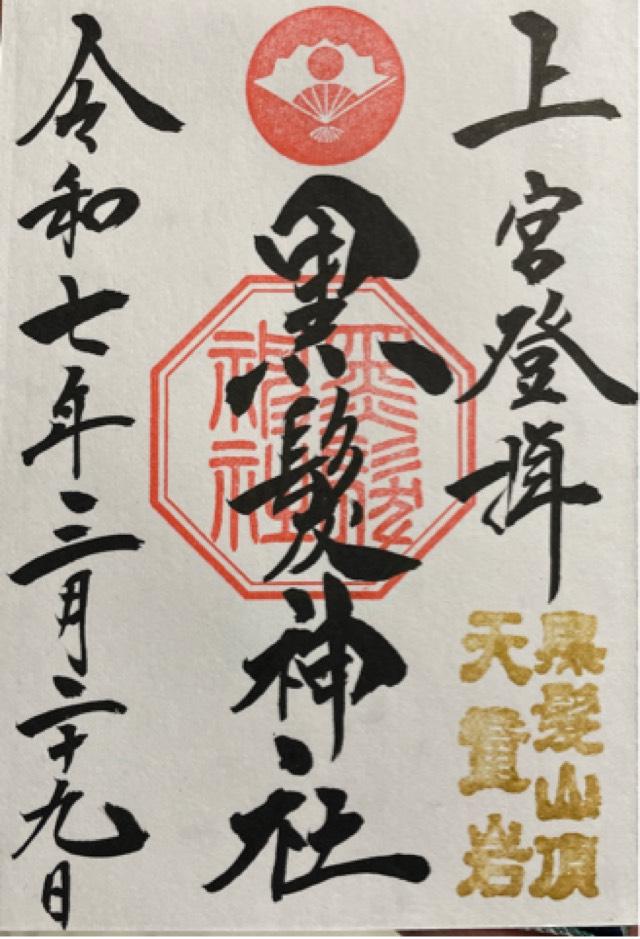 上宮登拝
黒髪山頂
天童岩
黒髪神社
黒髪
神社
令和七年三月二十九日